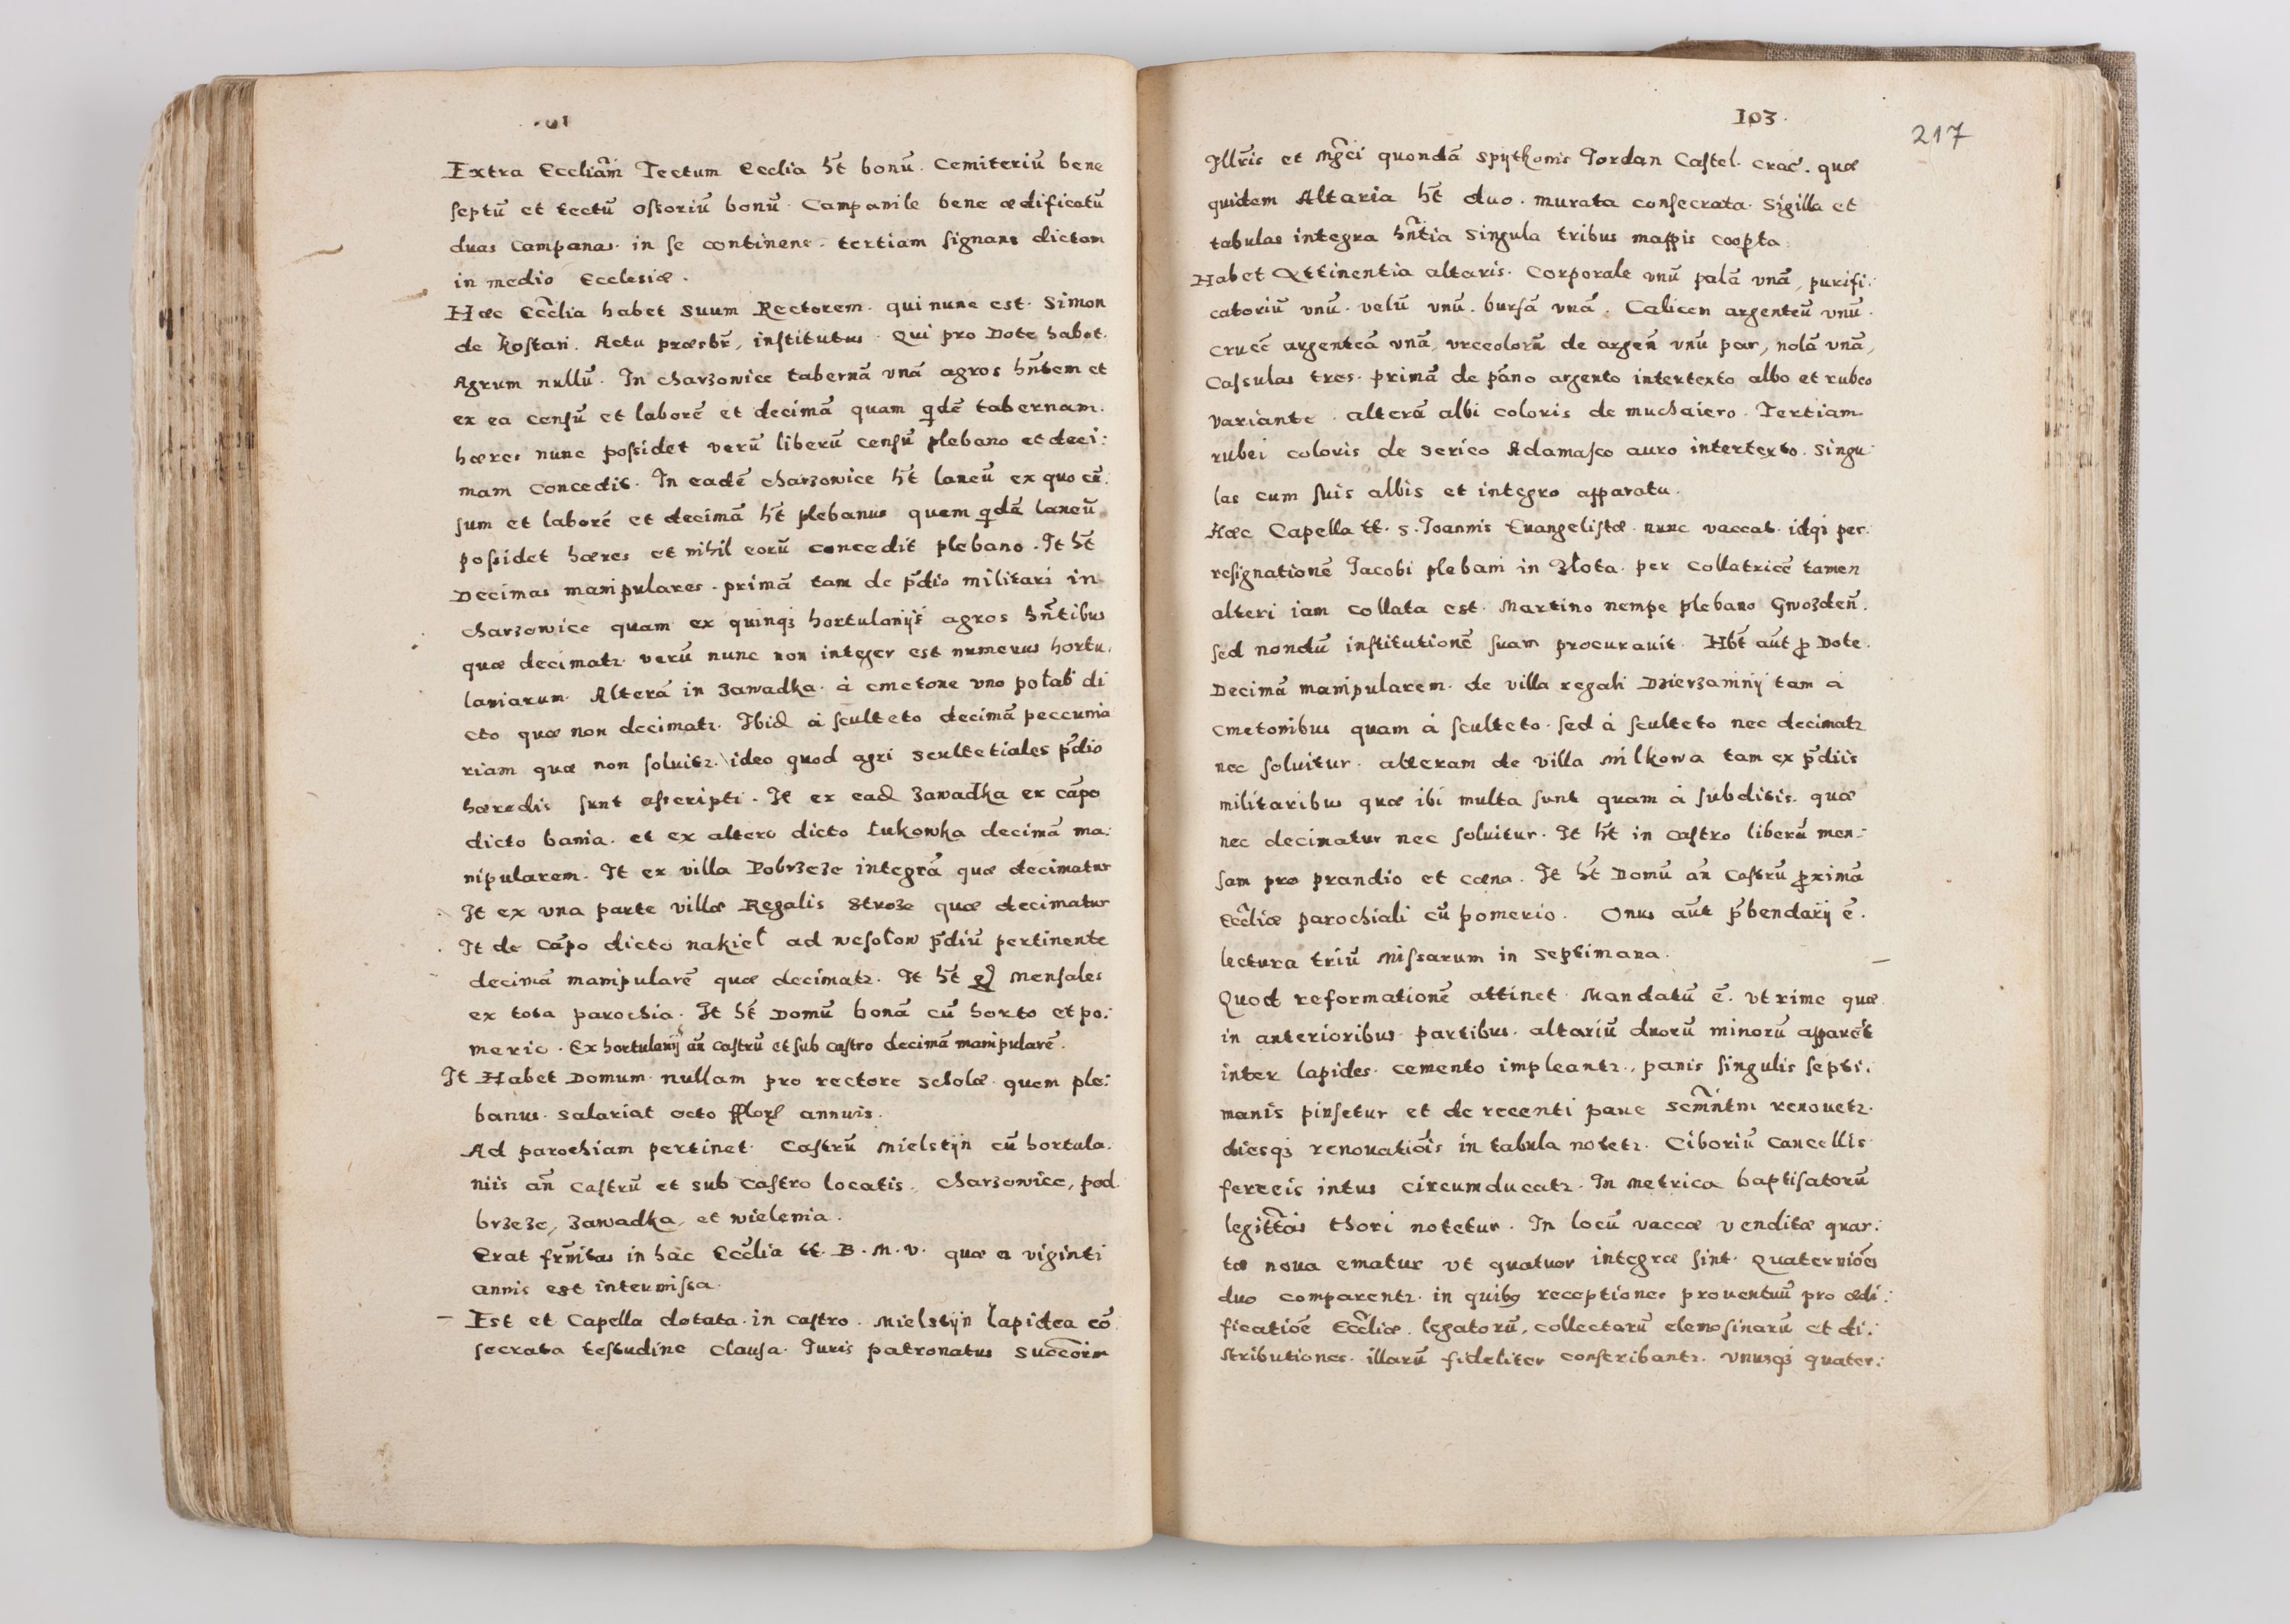 Extra Eccliam̃ Tectum Ecclia hĩt bonũ. Cemiteriũ bene
ſeptũ et tectũ oſſoriũ bonũ. Campanile bene ædificatũ
duas Campanas. in ſe continens. tertiam ſignans dictam
in medio Ecclesiæ.
Hæc Ecc̃lia habet Suum Rectorem. qui nunc est. Simon
de Koſtan. Actu præsbr̃, inſtitutus. Qui pro Dote habet.
Agrum nullũ. In charzowice tabernã vnã agros hñtem et
ex ea cenſũ et laborẽ et decimã quam qdẽ tabernam.
hæres nunc poſſidet verũ liberũ cenſũ plebano et deci:
mam concedit. In eadẽ charzowice hĩt laneũ ex quo cẽ:
ſum et laborẽ et decimã hĩt plebanus quem qdã laneũ
poſſidet hæres et nihil eorũ concedit plebano. It hĩt
Decimas manipulares. primã tam de p̃dio militari in
charzowice quam ex quinqȝ hortulanijs agros hñtibus
quæ decimatr. verũ nunc non integer est numerus hortu.
laniarum. Alterã in Zawadka. à cmetone vno połab di
cto quæ non decimatr. Ibid à ſculteto decimã peccunia
riam quæ non ſoluitr. ideo quod agri Scultetiales p̃dio
hæredis ſunt aſſcripti. It ex ead Zawadka ex cãpo
dicto bania. et ex altero dicto Łukowka decimã ma:
nipularem. It ex villa Pobrzeze integrã quæ decimatur
It ex vna parte villæ Regalis Stroze quæ decimatur
It de Cãpo dicto nakieł ad wesołow p̃diũ pertinente
decimã manipularẽ quæ decimatr. It hĩt Mensales
ex tota parochia. It hĩt Domũ bonã cũ horto et po:
merio. Ex hortulanijs añ caſtrũ et sub caſtro decimã manipularẽ.
It Habet Domum nullam pro rectore Scholæ quem ple:
banus. Salariat octo annuis.
Ad parochiam pertinet. Caſtrũ Mielstÿn cũ hortula.
niis añ Caſtrũ et sub Caſtro locatis. Charzowice, pod
brzeze, Zawadka, et wielenia.
Erat fr̃nitas in hac Ecc̃lia tt. B. M. V. quæ a viginti
annis est intermiſſa.
– Est et Capella dotata in caſtro. Mielstÿn lapidea cõ
ſecrata teſtudine clauſa. Iuris patronatus Succorũ
103.
217
Illr̃is et Mg̃ci quondã Spytkonis Iordan Caſtel. crac̃. quæ
quidem Altaria hĩt duo. murata conſecrata. Sigilla et
tabulas integra hñtia Singula tribus mappis coopta.
Habet Attinentia altaris. Corporale vnũ palã vnã, purifi:
catoriũ vnũ. velũ vnũ. burſã vnã. Calicem argenteũ vnũ.
crucẽ argenteã vnã, vrceolorũ de argen̄ vnũ par, nolã vnã,
Caſsulas tres. primã de pãno argento intertexto albo et rubeo
variante. alterã albi coloris de muchaiero. Tertiam
rubei coloris de Serico Adamaſco auro intertexto. Singu:
las cum ſuis albis et integro apparatu.
Hæc Capella tt. S. Ioannis Euangeliſtæ. nunc vaccat. idqȝ per.
reſignationẽ Iacobi plebani in Złota. per Collatricẽ tamen
alteri iam Collata est. Martino nempe plebano Gwozden̄.
ſed nondũ inſtitutionẽ ſuam procurauit. Hbt aũt p Dote.
Decimã manipularem. de villa regali Dzierzaninÿ tam à
cmetonibus quam à ſculteto. ſed à ſculteto nec decimatr
nec ſoluitur. alteram de villa Milkowa tam ex p̃diis
militaribus quæ ibi multa ſunt quam à ſubditis. quæ
nec decimatur nec ſoluitur. It hĩt in Caſtro liberũ men-:
ſam pro prandio et cæna. It hĩt Domũ añ Caſtrũ pximã
Ecc̃liæ parochiali cũ pomerio. Onus aũt p̃bendarij ẽ.
lectura triũ Miſſarum in Septimana.
Quod reformationẽ attinet. Mandatũ ẽ. vt rime quæ
in anterioribus partibus. altariũ duorũ minorũ apparẽt
inter lapides. cemento impleantr., panis ſingulis ſepti:
manis pinſetur et de recenti pane Sc̃mñtm renouetr.
diesqȝ renouatiõis in tabula notetr. Ciboriũ Cancellis
ferreis intus circumducatr. In Metrica baptiſatorũ
legitt̃ais thori notetur. In locũ vaccæ venditæ quar:
tæ noua ematur vt quatuor integræ ſint. Quaterniões
duo comparentr. in quibꝯ receptiones prouentuũ pro ædi:
ficatiõe Ecc̃liæ. legatorũ, collectarũ elemoſinarũ et di:
ſtributiones. illarũ fideliter conſcribantr. vnusqȝ quater: